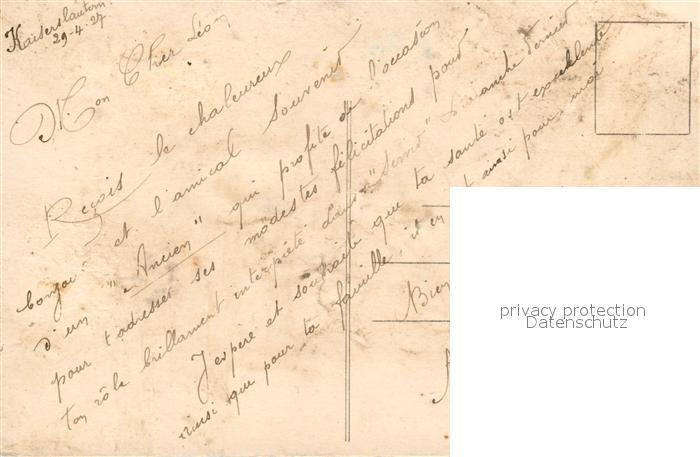 Kaiserslautern
29-4.27
Mon Cher Léon
Reçois le chaleureux
bonjour et l'amical souvenir
d'un "Ancien" qui profite de l'occasion
pour t'adresser ses modestes félicitations pour
ton rôle brillament interprété dans " " Dimanche dernier
J'espère et souhaite que ta santé est excellente
ainsi que pour ta famille, il en est ainsi pour moi
Bien
privacy protection
Datenschutz